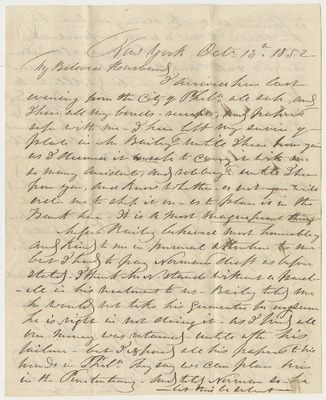 New York Oct. 13th 1852
My Beloved Husband
I arrived here last
evening from the City of Phila all safe, and
I have all my bonds - and papers
safe with me - I have left my service of
plate in Mr Bailys until I hear from you
as I deemed it unsafe to carry it with me
so many accidents, and robbing until I hear
from you, and know whether or not you will
order me to ship it on - or to place it in the
Bank here - It is a most magnificent thing
Baily behaved most honorably
and kind to me in personal attention to me
but I had to pay Norman's theft as before
stated. I think he stands without a paral-
-ell in his treatment to us - Baily told me
he would not take his guarantee for
he is right in not doing it - as I find all
our money was retained until after his
failure - but I found all his papers to his
in Phila. They say we can place him
in the Penitentiary. And told Norman so -
let this be silent